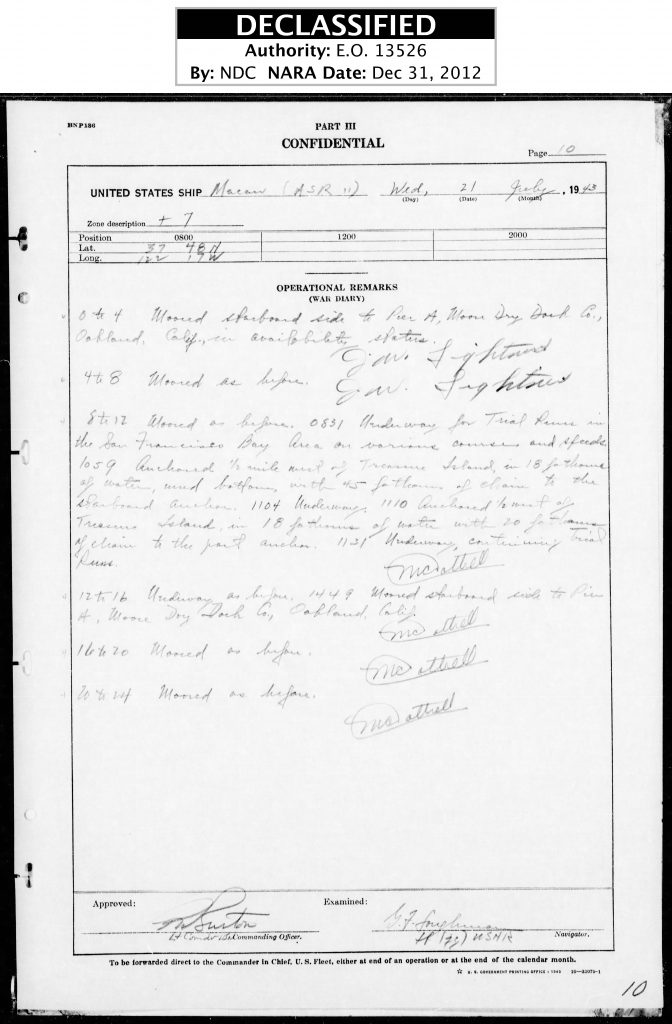 DECLASSIFIED
Authority: E.O. 13526
By: NDC NARA Date: Dec 31, 2012
PART III
CONFIDENTIAL
Page 10
UNITED STATES SHIP Macaw (ASR 11) Wed, 21 July, 1943
(Day) (Date) (Month)
Zone description + 7
Position 0800 1200 2000
Lat. 37 48 N
Long. 122 17 W
OPERATIONAL REMARKS
(WAR DIARY)
0 to 4 Moored starboard side to Pier A, Moore Dry Dock Co.,
Oakland, Calif., in availability status.
4 to 8 Moored as before.
8 to 12 Moored as before. 0831 Underway for Trial Runs in
the San Francisco Bay Area on various courses and speeds.
1059 Anchored ½ mile west of Treasure Island, in 18 fathoms
of water, mud bottom, with 45 fathoms of chain to the
starboard anchor. 1104 Underway. 1110 Anchored ½ west of
Treasure Island, in 18 fathoms of water with 20 fathoms
of chain to the port anchor. 1131 Underway, continuing Trial
Runs.
12 to 16 Underway as before. 1449 Moored starboard side to Pier
A, Moore Dry Dock Co., Oakland, Calif.
16 to 20 Moored as before.
20 to 24 Moored as before.
Approved: Examined:
Commanding Officer. Lt (jg) USNR Navigator.
To be forwarded direct to the Commander in Chief, U. S. Fleet, either at end of an operation or at the end of the calendar month.
U. S. GOVERNMENT PRINTING OFFICE
10